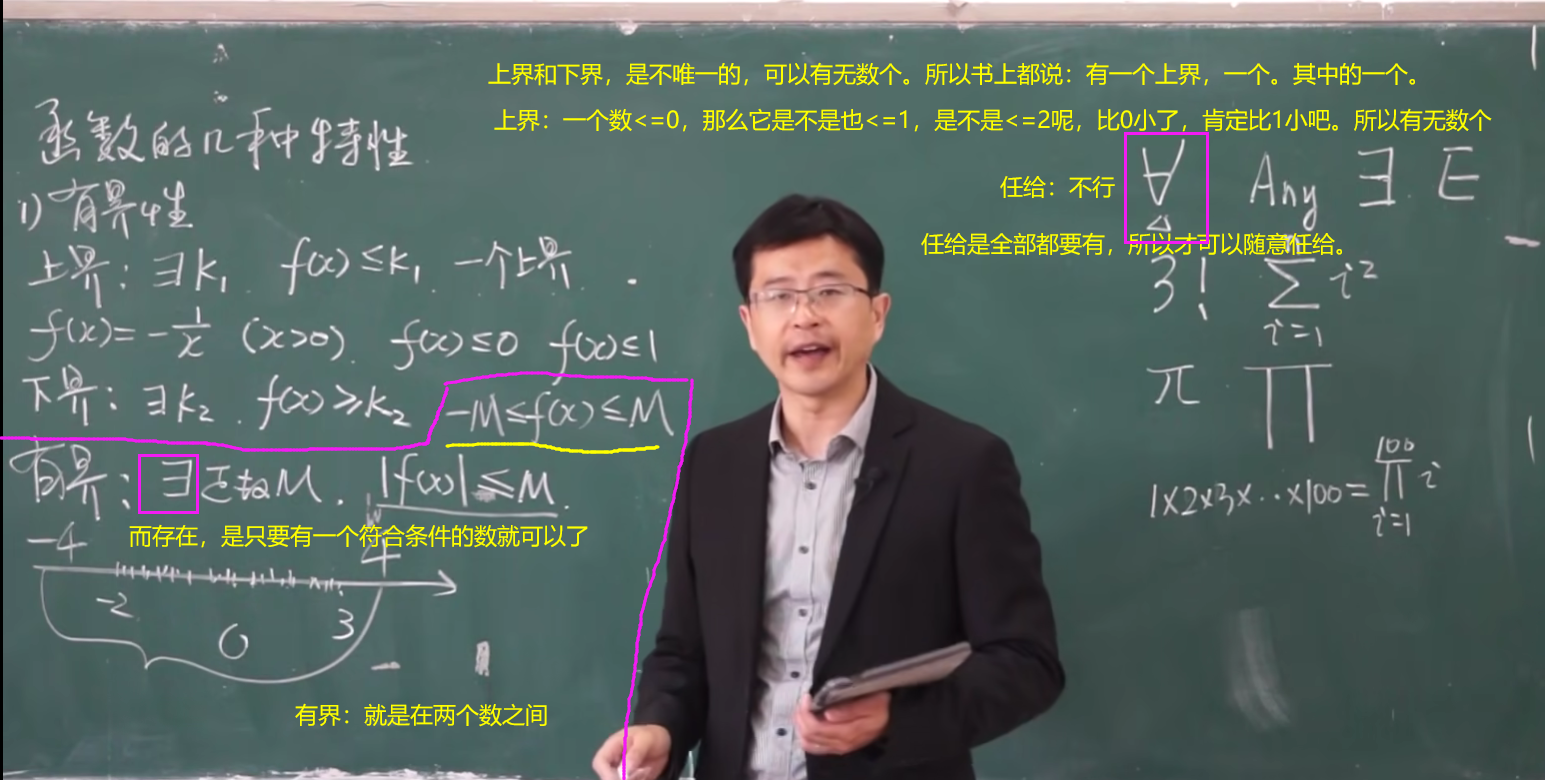 上界和下界，是不唯一的，可以有无数个。所以书上都说：有一个上界，一个。其中的一个。
上界：一个数<=0，那么它是不是也<=1，是不是<=2呢，比0小了，肯定比1小吧。所以有无数个
函数的几种特性
1) 有界性
上界：∃k₁ f(x)≤k₁ 一个上界
f(x)=-1/x (x>0). f(x)≤0 f(x)≤1
下界：∃k₂. f(x)≥k₂
-M≤f(x)≤M
有界：∃正数M. |f(x)|≤M.
而存在，是只要有一个符合条件的数就可以了
-4 4
-2 0 3
有界：就是在两个数之间
任给：不行
∀ Any ∃. E
任给是全部都要有，所以才可以随意任给。
3! ∑ i²
i=1
π ∏
1×2×3×...×100=∏ i
100
i=1